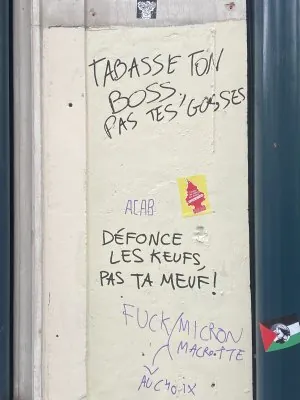 TABASSE TON
BOSS,
PAS TES GOSSES
ACAB
DÉFONCE
LES KEUFS,
PAS TA MEUF!
FUCK/MICRON
MACROTTE
AU CHOIX